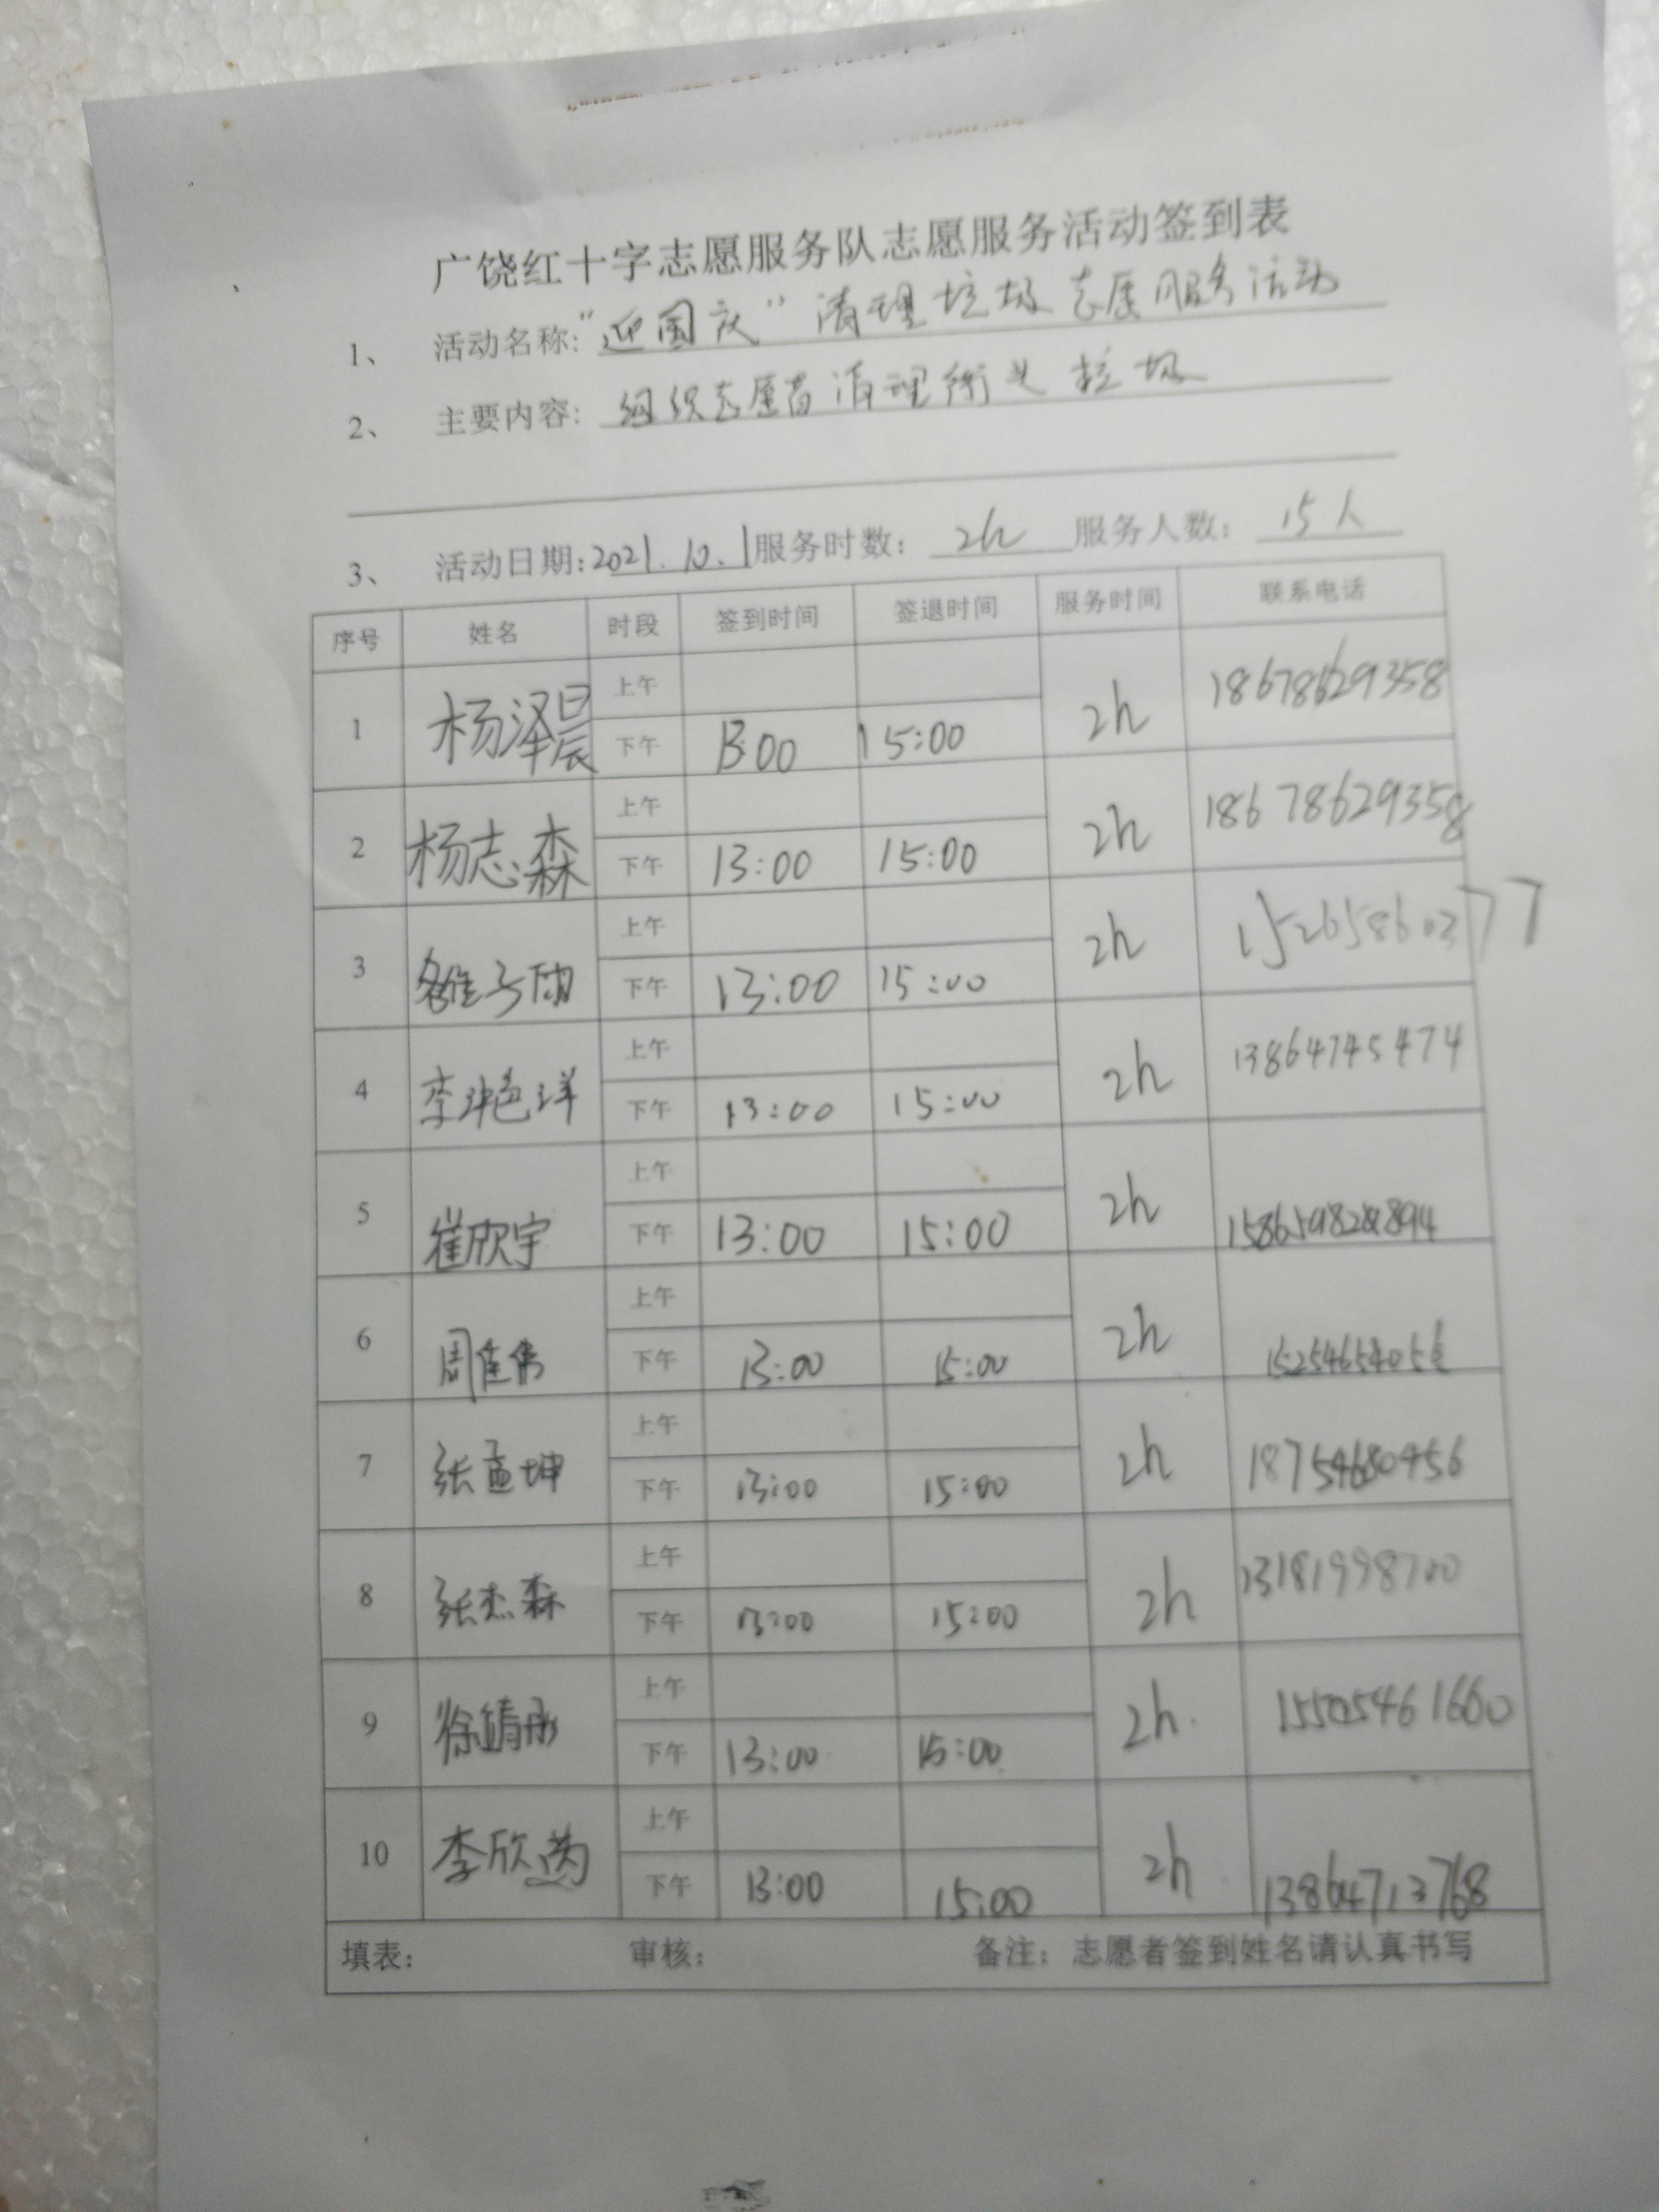 广饶红十字志愿服务队志愿服务活动签到表
1、 活动名称:“迎国庆”清理垃圾志愿服务活动
2、 主要内容: 组织志愿者清理街头垃圾
3、 活动日期:2021.10.1服务时数: 2h 服务人数: 15人
序号 姓名 时段 签到时间 签退时间 服务时间 联系电话
1 杨泽晨 上午 2h 18678629358
下午 13:00 15:00
2 杨志森 上午 2h 18678629358
下午 13:00 15:00
3 上午 2h 15265860377
下午 13:00 15:00
4 李艳洋 上午 2h 13864745474
下午 13:00 15:00
5 崔欣宇 上午 2h
下午 13:00 15:00
6 周佳伟 上午 2h
下午 13:00 15:00
7 张孟坤 上午 2h 18754680456
下午 13:00 15:00
8 张杰森 上午 2h 13181998700
下午 13:00 15:00
9 徐婧彤 上午 2h.
下午 13:00 15:00
10 李欣茜 上午 2h 13864713768
下午 13:00 15:00
填表: 审核: 备注:志愿者签到姓名请认真书写